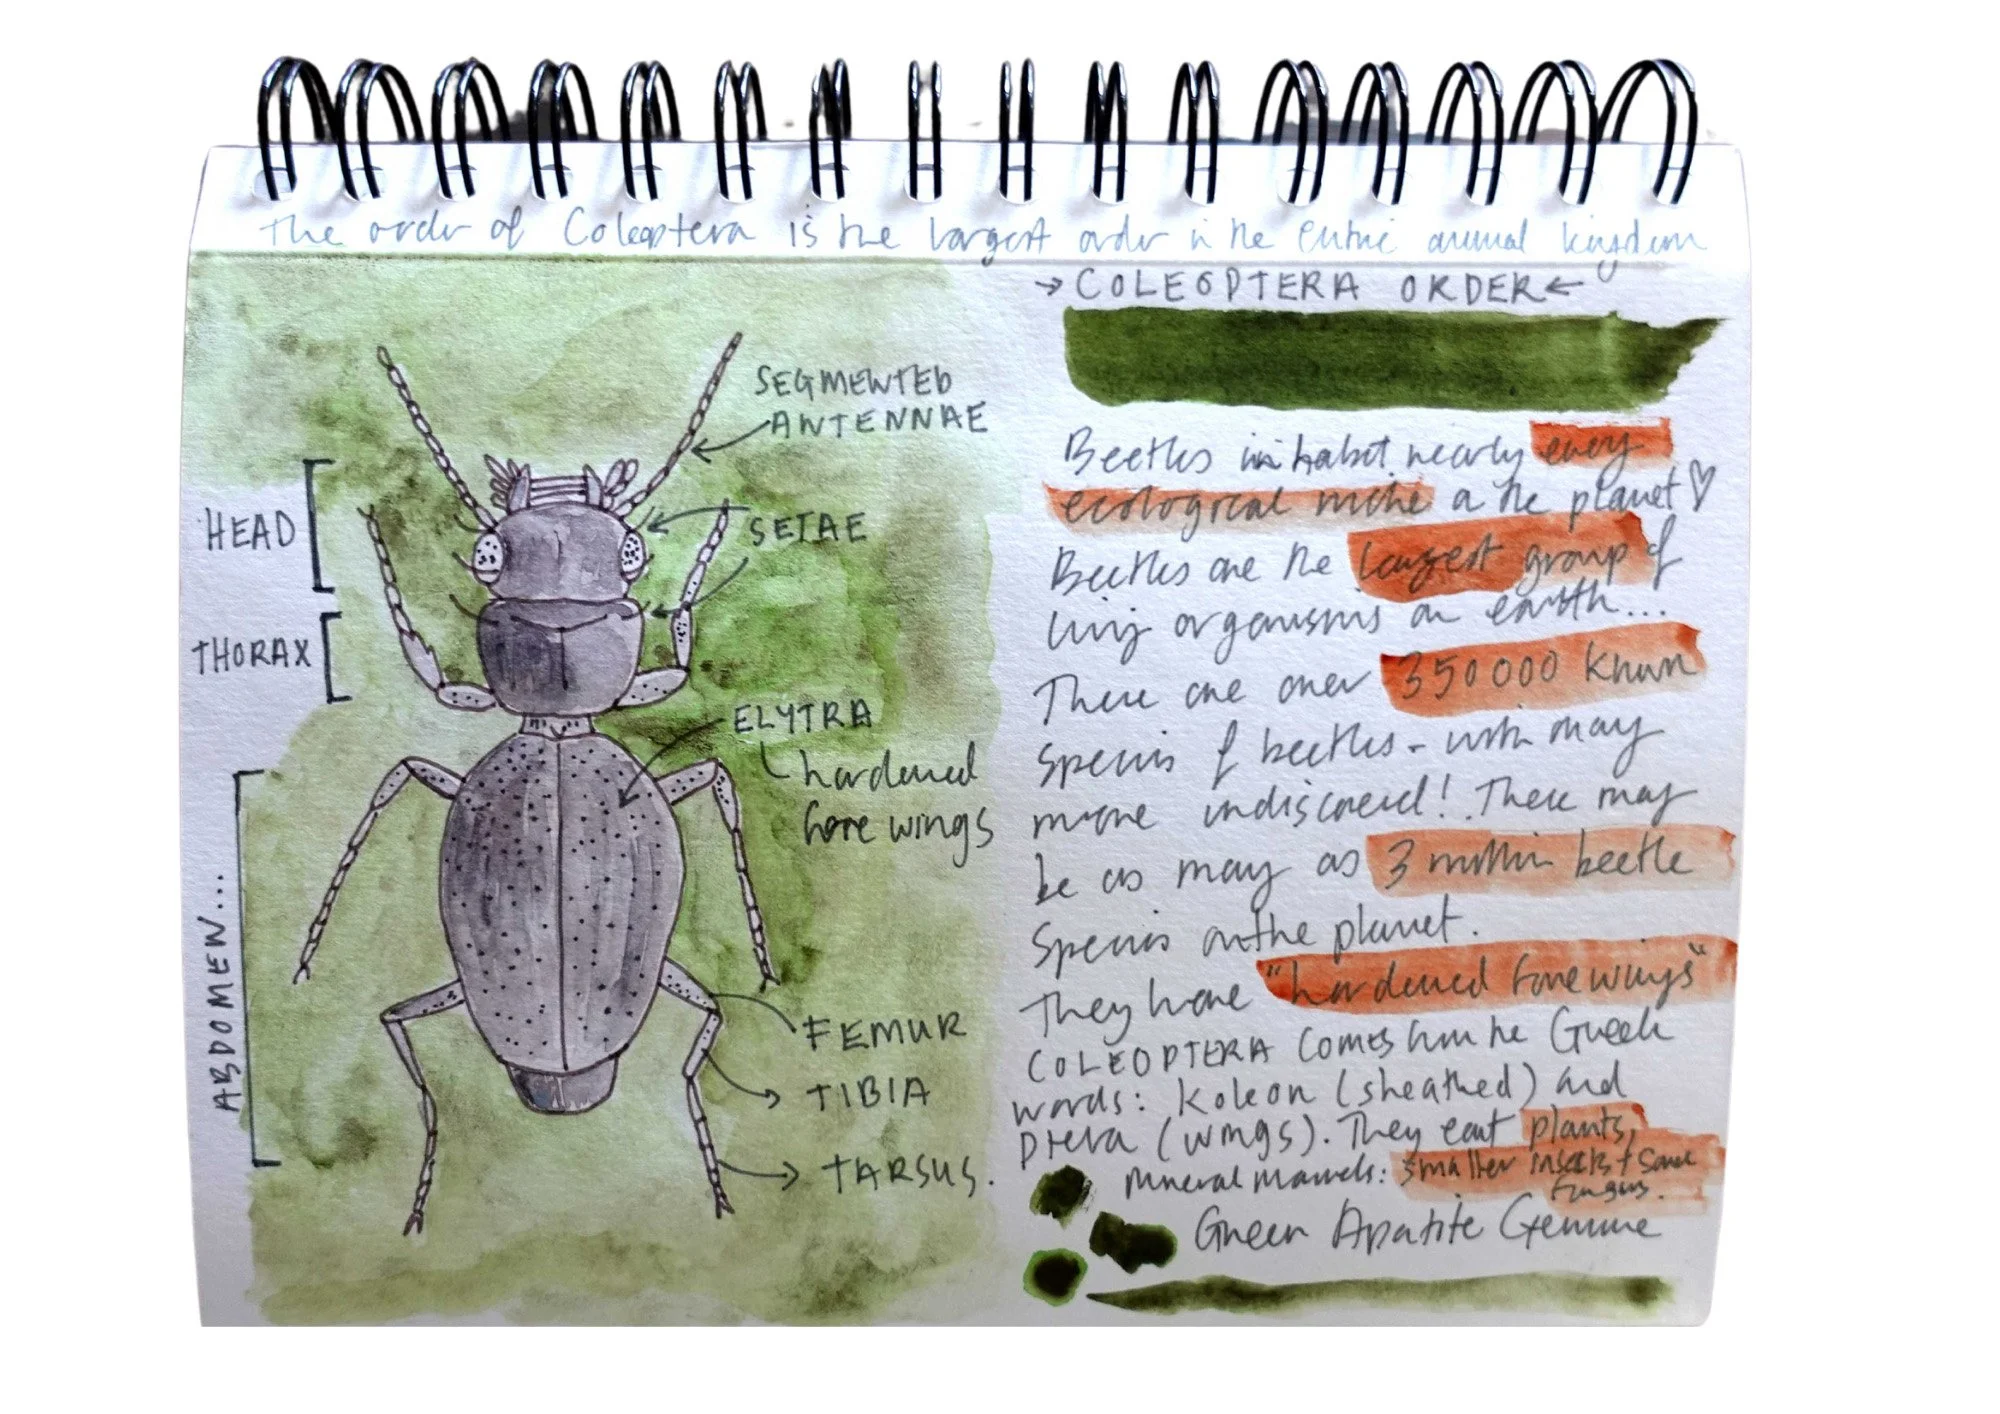 The order of Coleoptera is the largest order in the entire animal kingdom
→ COLEOPTERA ORDER ←
SEGMENTED
ANTENNAE
HEAD
SETAE
THORAX
ELYTRA
hardened
fore wings
ABDOMEN...
FEMUR
TIBIA
TARSUS.
Beetles inhabit nearly every
ecological niche on the planet ♡
Beetles are the largest group of
living organisms on earth...
There are over 350000 known
species of beetles - with many
more undiscovered! There may
be as many as 3 million beetle
species on the planet.
They have "hardened forewings"
COLEOPTERA comes from the Greek
words: Koleon (sheathed) and
ptera (wings). They eat plants,
smaller insects + some
fungus.
Mineral Marvels:
Green Apatite Genuine